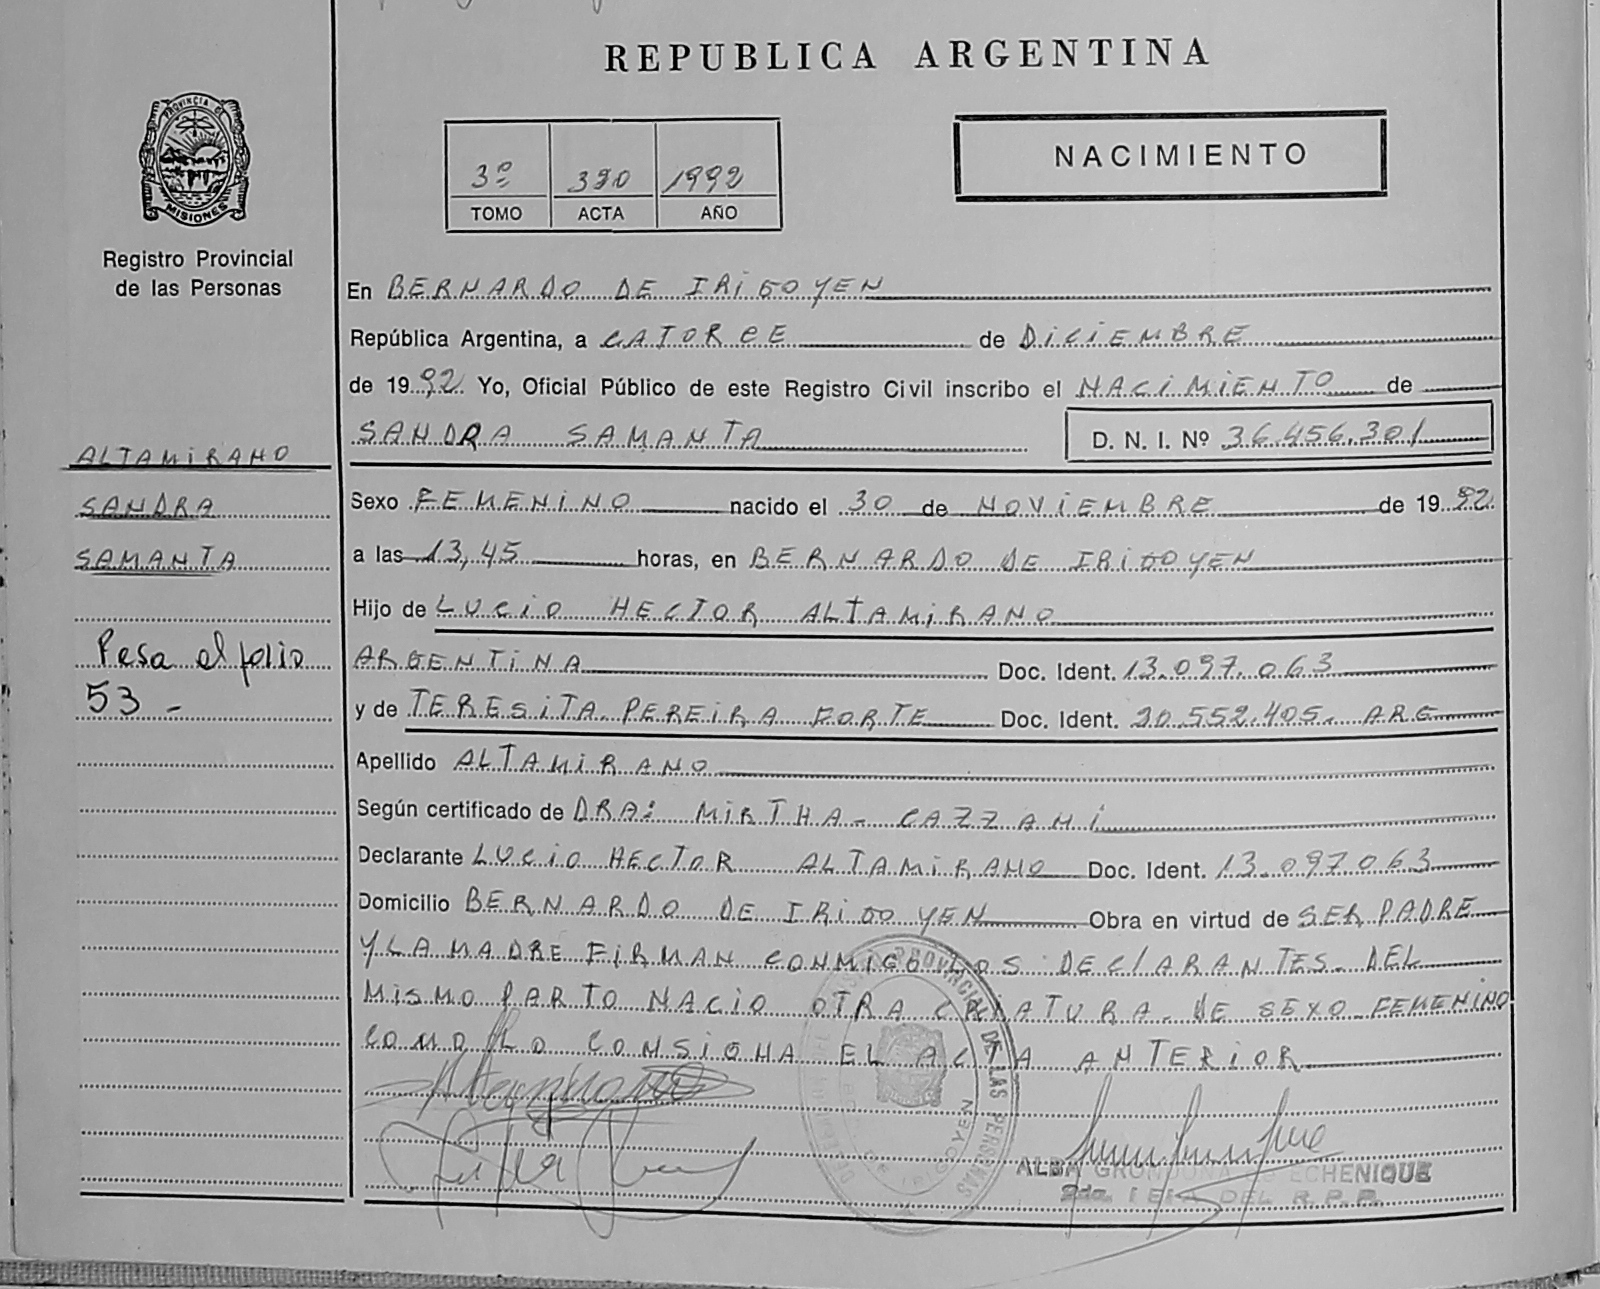 REPUBLICA ARGENTINA
PROVINCIA DE
MISIONES
Registro Provincial
de las Personas
3º 390 1992
TOMO ACTA AÑO
NACIMIENTO
En BERNARDO DE IRIGOYEN
República Argentina, a CATORCE de DICIEMBRE
de 1992 Yo, Oficial Público de este Registro Civil inscribo el NACIMIENTO de
SANDRA SAMANTA D. N. I. Nº 36.456.301
ALTAMIRANO
SANDRA
SAMANTA
Pesa al folio
53 -
Sexo FEMENINO nacido el 30 de NOVIEMBRE de 1992
a las 13,45 horas, en BERNARDO DE IRIGOYEN
Hijo de LUCIO HECTOR ALTAMIRANO
ARGENTINA Doc. Ident. 13.097.063
y de TERESITA PEREIRA FORTE Doc. Ident. 20.552.405. ARG
Apellido ALTAMIRANO
Según certificado de DRA: MIRTHA- CAZZANI
Declarante LUCIO HECTOR ALTAMIRANO Doc. Ident. 13.097.063
Domicilio BERNARDO DE IRIGOYEN Obra en virtud de SER PADRE
Y LA MADRE FIRMAN CONMIGO LOS DECLARANTES. DEL
MISMO PARTO NACIO OTRA CRIATURA. DE SEXO FEMENINO
COMO LO CONSIGNA EL ACTA ANTERIOR
PROVINCIAL DE LAS PERSONAS
DE IRIGOYEN
ALBA GRONDONA de ECHENIQUE
R. P. P.